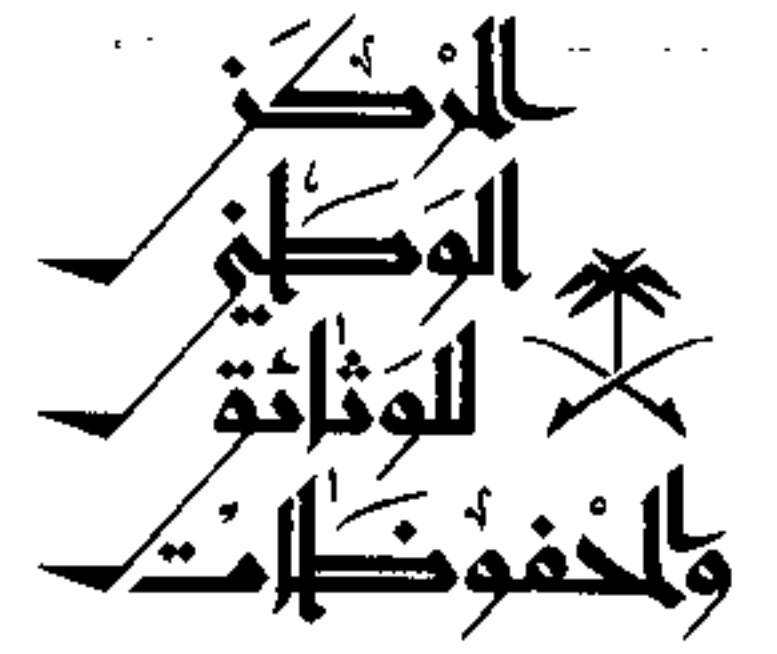 المَرْكَز
الوَطَني
للوَثائق
وَالمَحْفوظَات